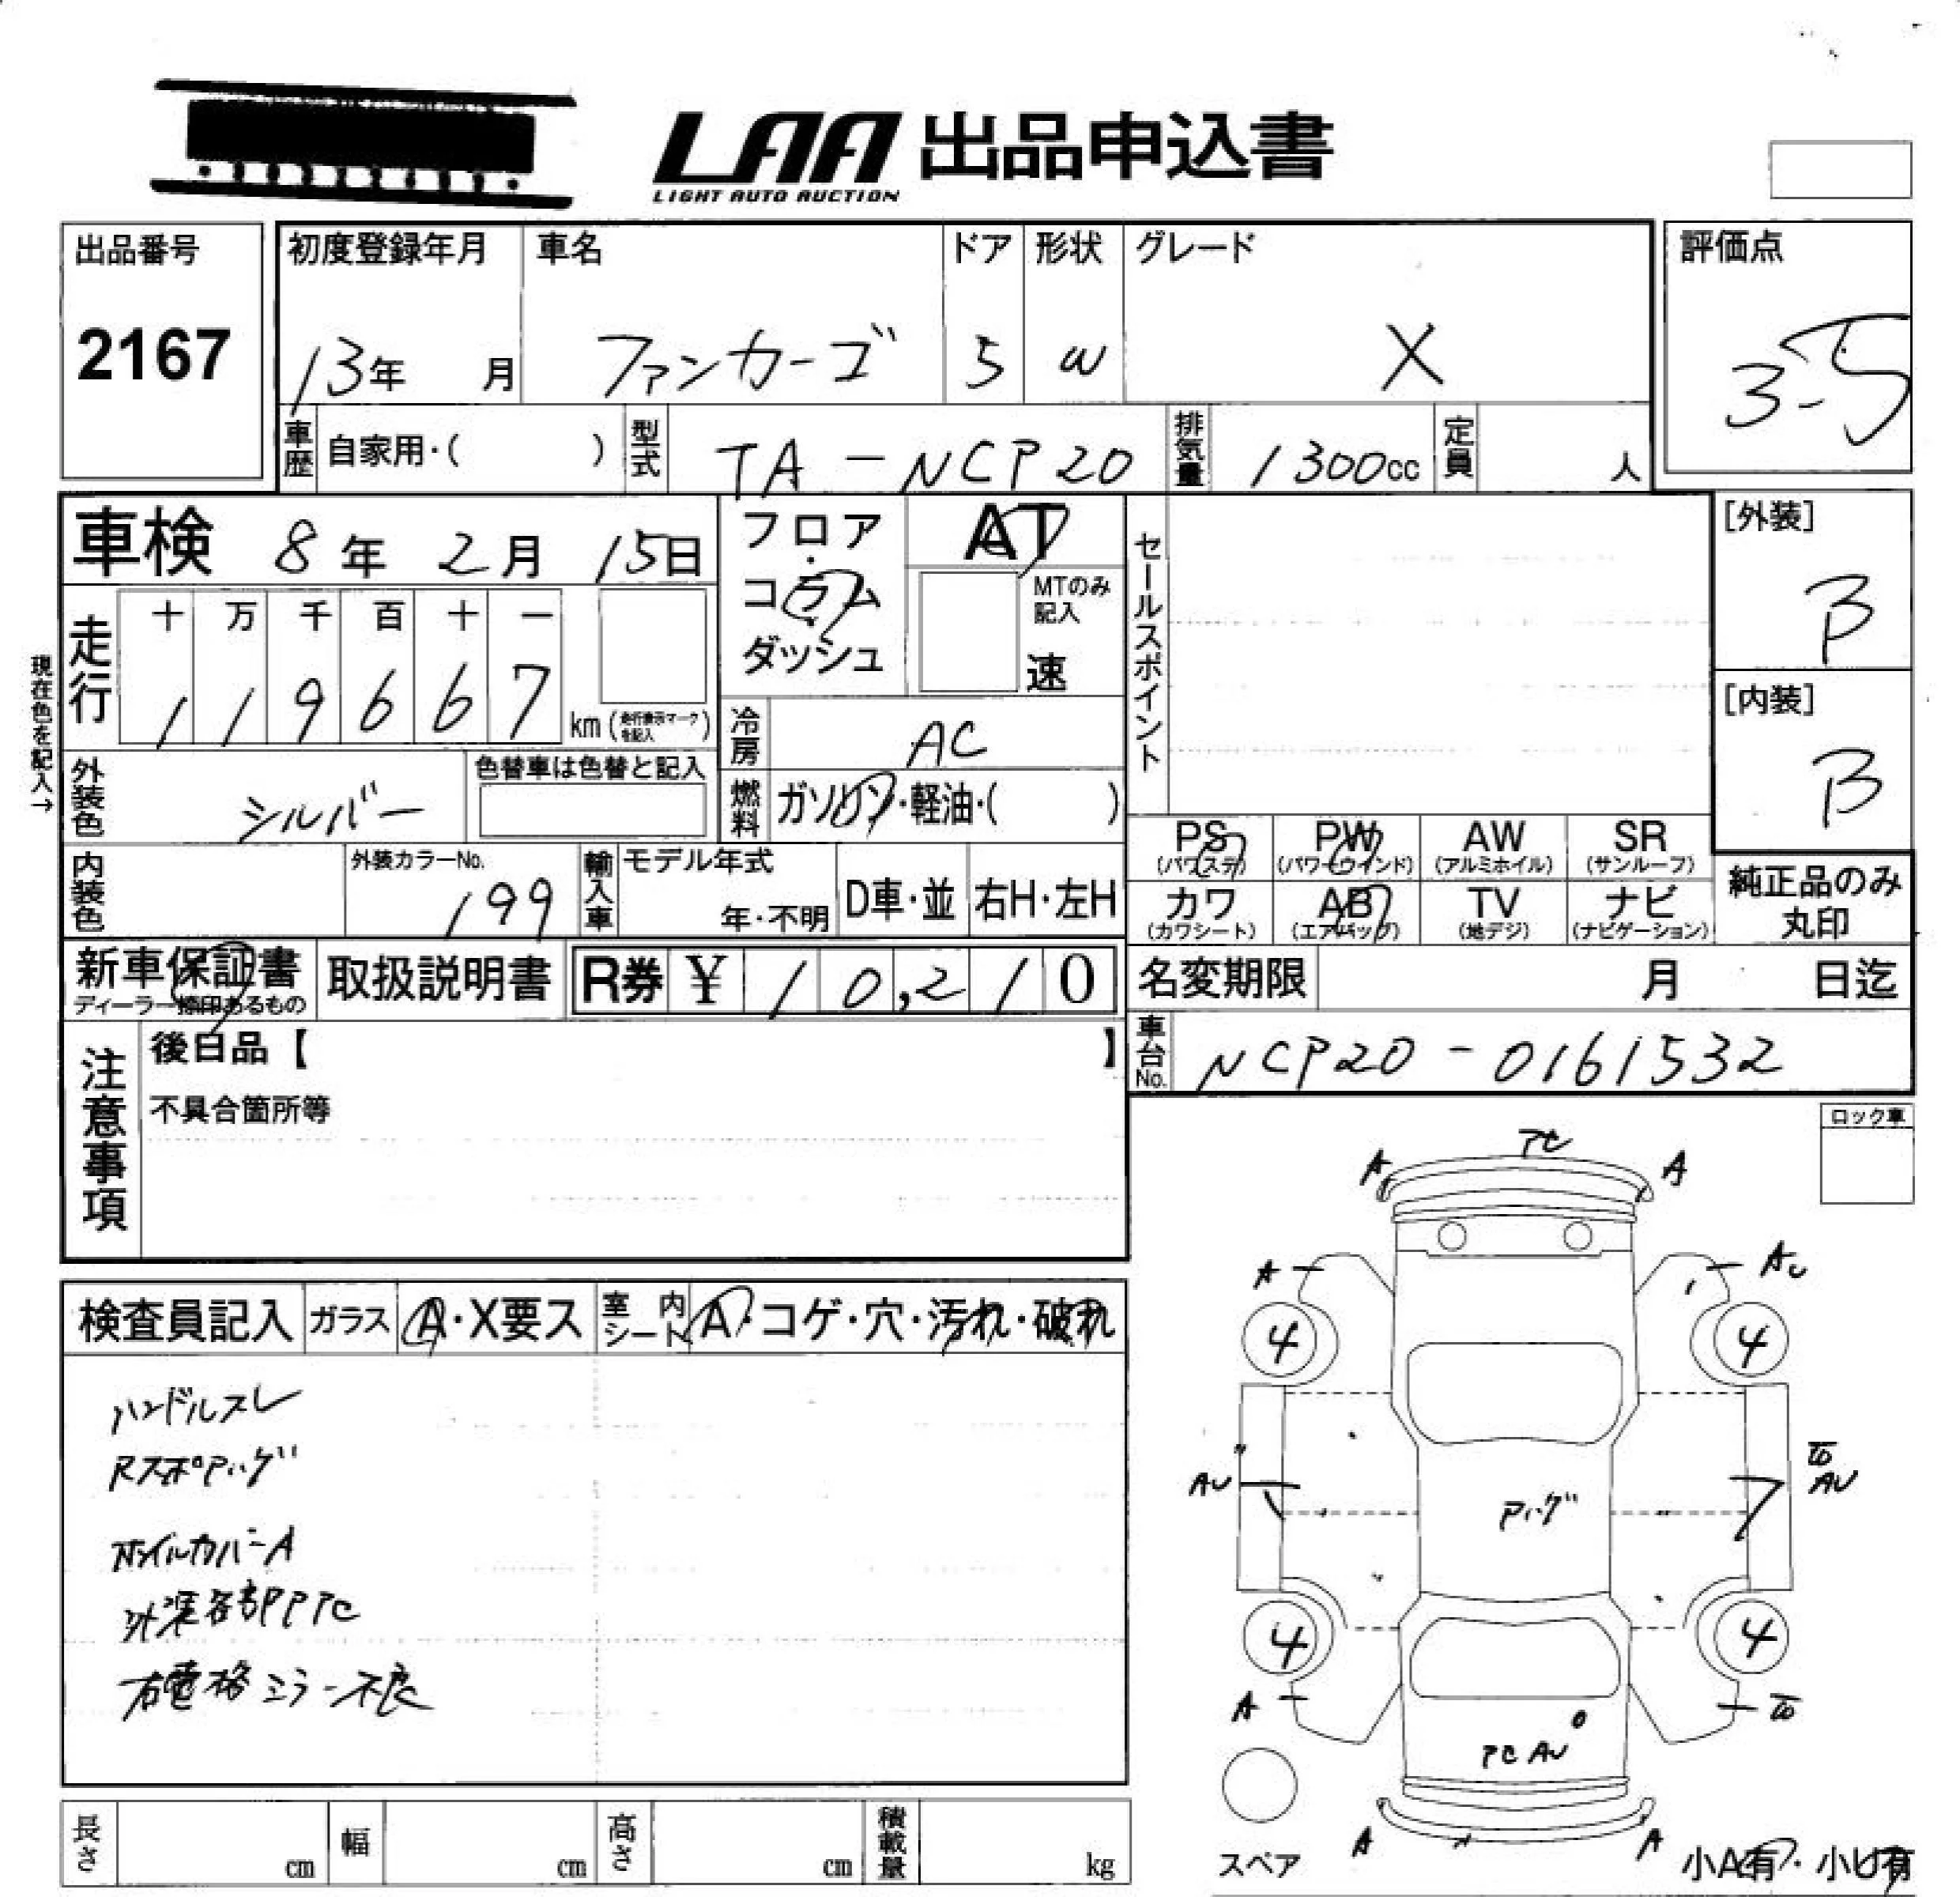 LAA 出品申込書
LIGHT AUTO AUCTION
出品番号
2167
初度登録年月
13年 月
車名
ファンカーゴ
ドア
5
形状
W
グレード
X
評価点
3.5
車歴 自家用・( )
型式 TA-NCP20
排気量 1300cc
定員 人
車検 8年 2月 15日
フロア・コラム・ダッシュ
AT
MTのみ記入
速
セールスポイント
[外装]
B
[内装]
B
現在色を記入→
走行
十 万 千 百 十 一
1 1 9 6 6 7 km (走行表示マークを記入)
冷房 AC
燃料 ガソリン・軽油・( )
外装色 シルバー
色替車は色替と記入
内装色
外装カラーNo.
199
輸入車
モデル年式
年・不明
D車・並
右H・左H
PS (パワステ)
PW (パワーウインド)
AW (アルミホイル)
SR (サンルーフ)
カワ (カワシート)
AB (エアバッグ)
TV (地デジ)
ナビ (ナビゲーション)
純正品のみ
丸印
新車保証書
ディーラー捺印あるもの
取扱説明書
R券 ¥ 10,210
名変期限 月 日迄
車台No. NCP20-0161532
注意事項
後日品【 】
不具合箇所等
ロック車
検査員記入 ガラス A・X要ス 室内シート A・コゲ・穴・汚れ・破れ
ハンドルスレ
Rスポアハゲ
ホイルカバーA
外装各部PPTC
右電格ミラー不良
A
A
A
4
4
AU
AU
Pハゲ
4
4
A
AU
A
A
スペア
小A有・小U有
長さ cm
幅 cm
高さ cm
積載量 kg